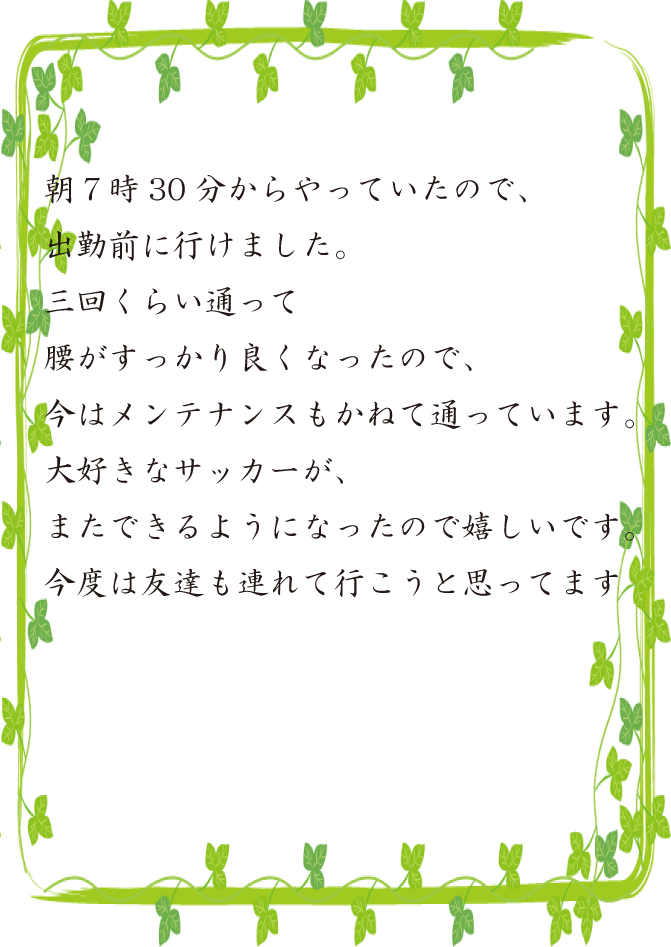 朝７時30分からやっていたので、
出勤前に行けました。
三回くらい通って
腰がすっかり良くなったので、
今はメンテナンスもかねて通っています。
大好きなサッカーが、
またできるようになったので嬉しいです。
今度は友達も連れて行こうと思ってます